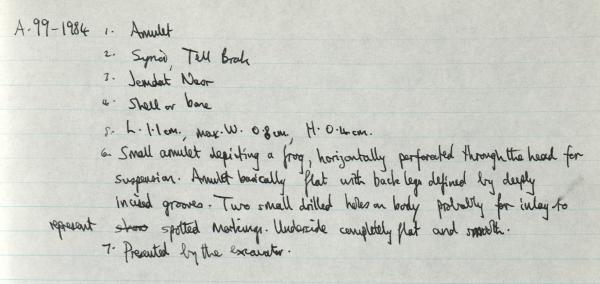 A.99-1984 1. Amulet
2. Syria, Tell Brak
3. Jemdat Nasr
4. Shell or bone
5. L. 1.1cm, max. W. 0.8cm, H. 0.4cm.
6. Small amulet depicting a frog, horizontally perforated through the head for
suspension. Amulet basically flat with back legs defined by deeply
incised grooves. Two small drilled holes on body probably for inlay to
represent spotted markings. Underside completely flat and smooth.
7. Presented by the excavator.